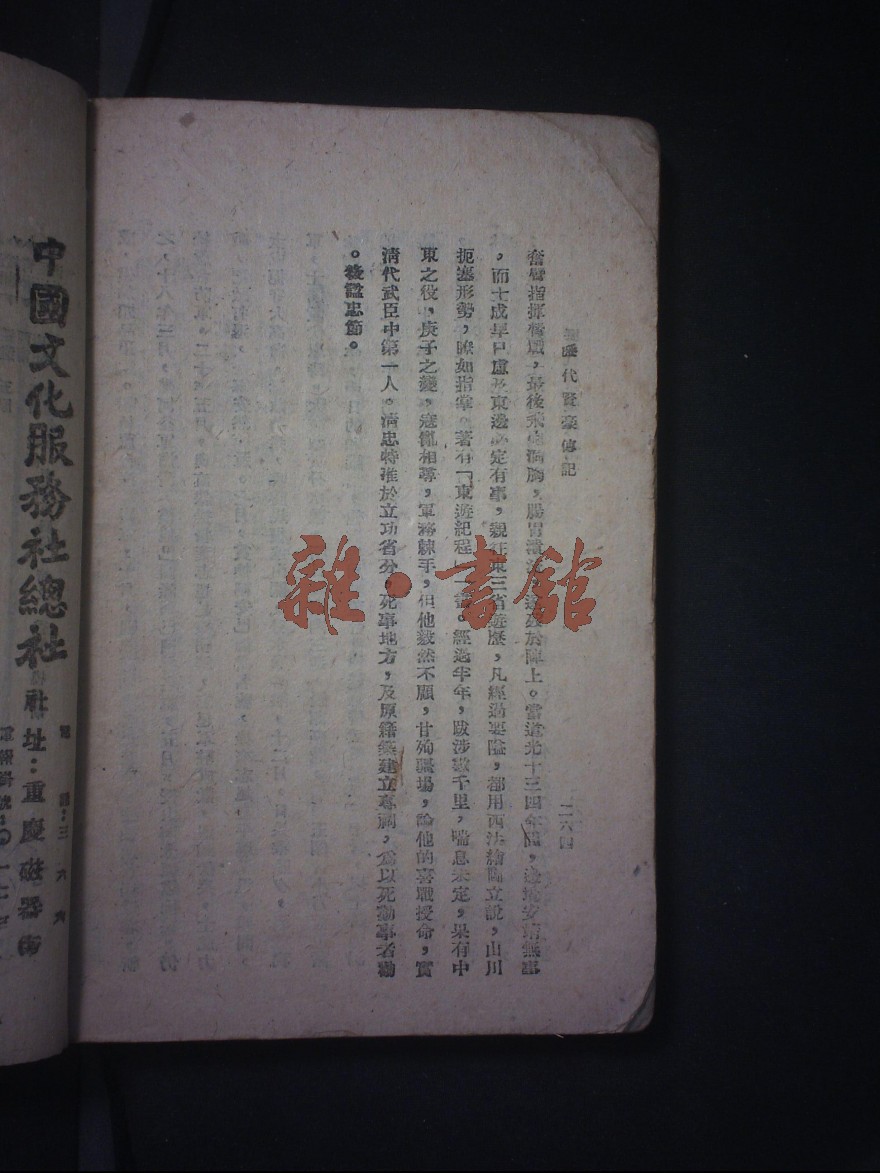 歷代賢豪傳記
二六四
奮臂指揮督戰,最後飛炮洞胸,腸胃潰流,遂歿於陣上。當道光十三四年間,邊境安靖無事
,而士成早已慮及東邊必定有事,親往東三省遊歷,凡經過要隘,都用西法繪圖立說,山川
扼塞形勢,瞭如指掌。著有「東遊紀程」一書。經過半年,跋涉數千里,喘息未定,果有中
東之役,庚子之變,寇氛相尋,軍務棘手,但他毅然不顧,甘殉疆場,論他的喜戰授命,實
清代武臣中第一人。清忠特准於立功省分,死事地方,及原籍建立專祠,為以死勤事者勸
。後謚忠節。
中國文化服務社總社
社址:重慶磁器街
雜·書館